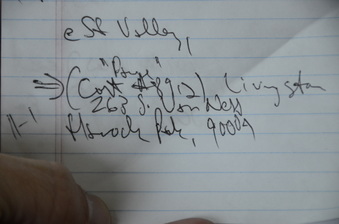 e St Valley,
"Bump"
⇒ (Cont #8912) Livingston
263 S. Van Ness
Hancock Park, 90004